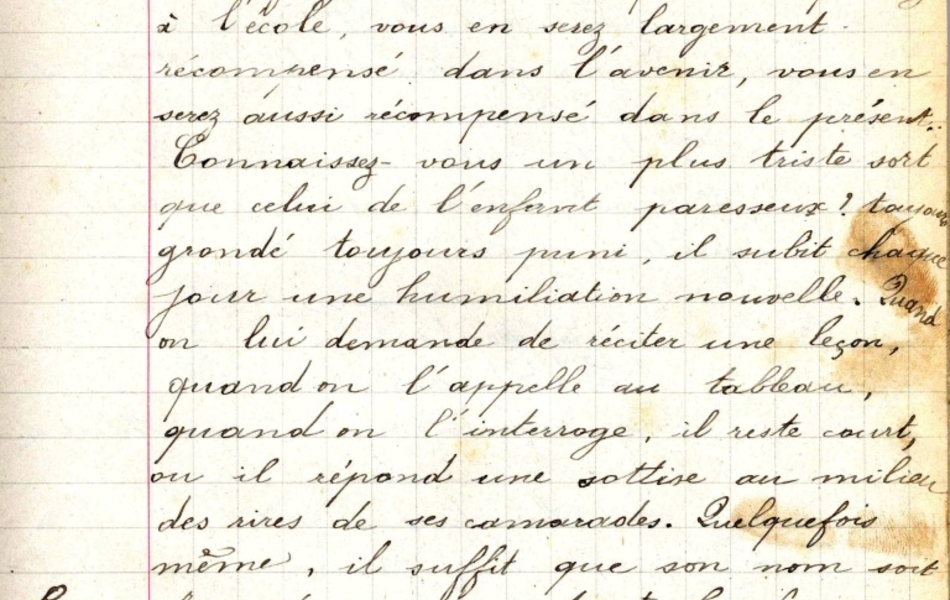 à l'école, vous en serez largement
récompensé dans l'avenir, vous en
serez aussi récompensé dans le présent.
Connaissez-vous un plus triste sort
que celui de l'enfant paresseux ? toujours
grondé toujours puni, il subit chaque
jour une humiliation nouvelle. Quand
on lui demande de réciter une leçon,
quand on l'appelle au tableau,
quand on l'interroge, il reste court,
ou il répond une sottise au milieu
des rires de ses camarades. Quelquefois
même, il suffit que son nom soit